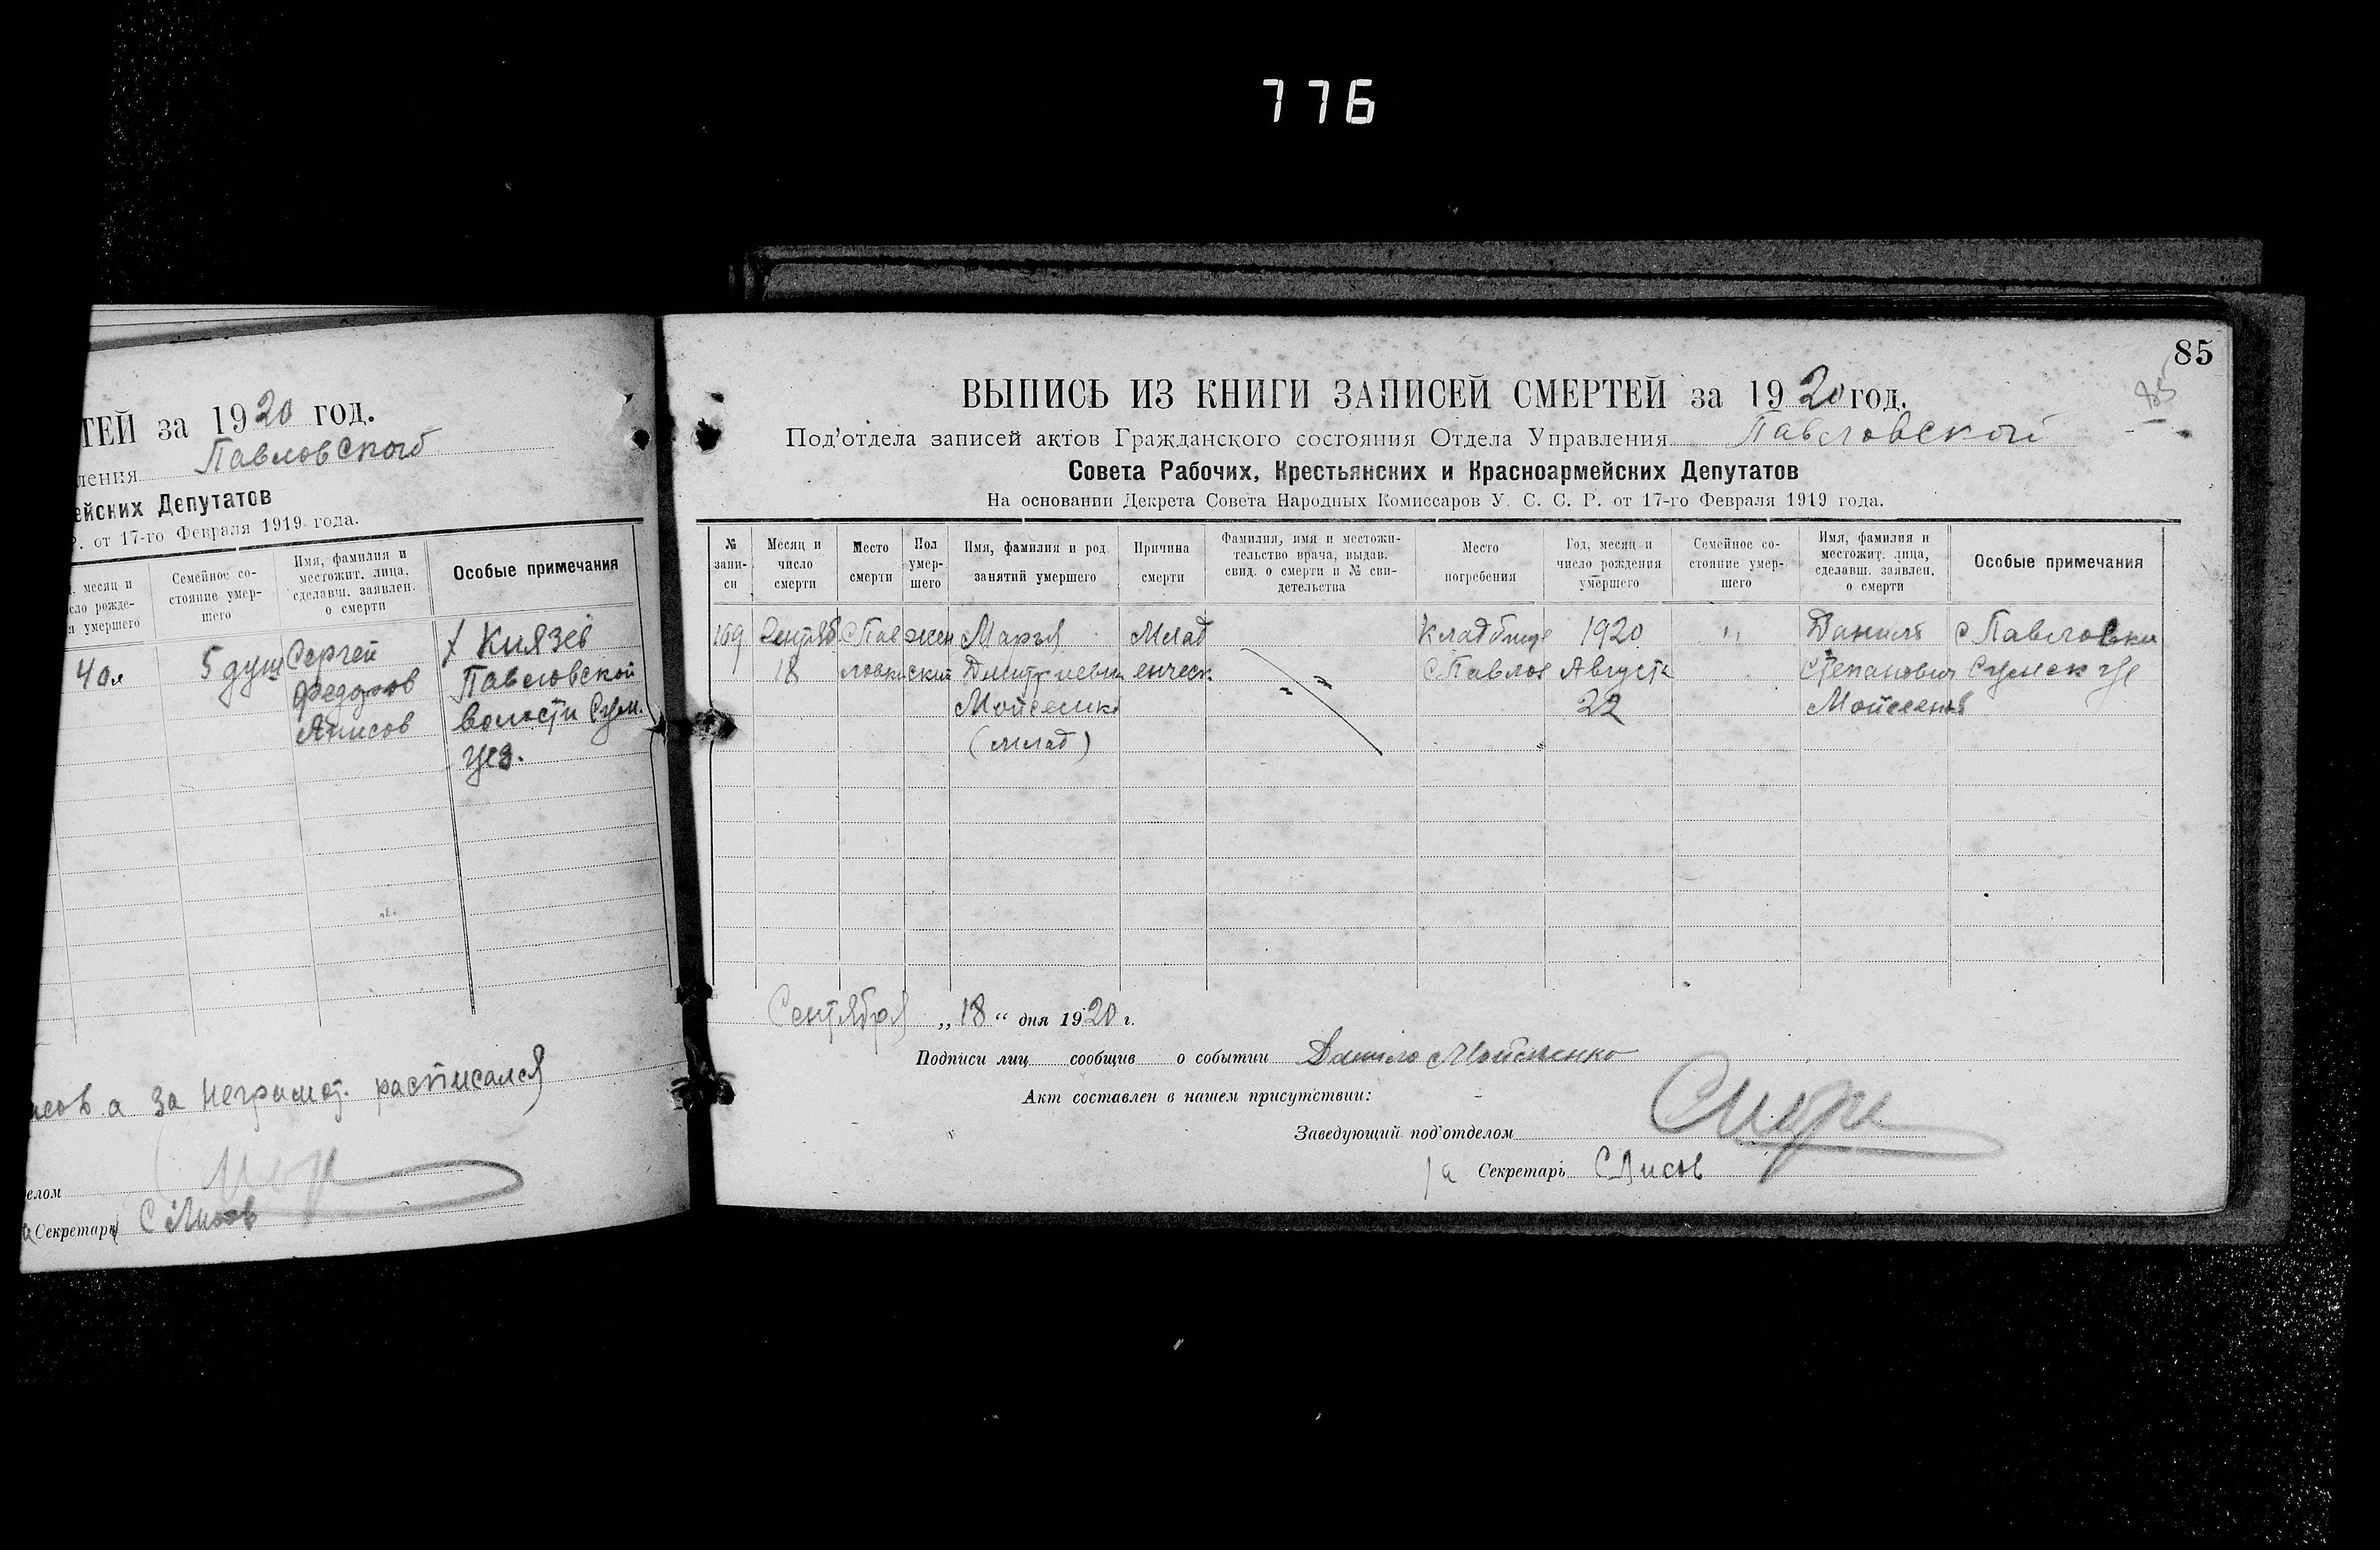 776
ТЕЙ за 1920 год.
ления Павловской
ейских Депутатов
Р. от 17-го Февраля 1919 года.
месяц и
сло рожде-
я умершего
Семейное со-
стояние умер-
шего
Имя, фамилия и
местожит. лица,
сделавш. заявлен.
о смерти
Особые примечания
40л
5 душ
Сергей
Федоров
х Князев
Павловской
волости Сум.
уез.
а за неграмот. расписался
елом
Секретарь
85
85
ВЫПИСЬ ИЗ КНИГИ ЗАПИСЕЙ СМЕРТЕЙ за 1920 год.
Под'отдела записей актов Гражданского состояния Отдела Управления Павловской
Совета Рабочих, Крестьянских и Красноармейских Депутатов
На основании Декрета Совета Народных Комиссаров У. С. С. Р. от 17-го Февраля 1919 года.
№
запи-
си
Месяц и
число
смерти
Место
смерти
Пол
умер-
шего
Имя, фамилия и род
занятий умершего
Причина
смерти
Фамилия, имя и местожи-
тельство врача, выдав.
свид. о смерти и № сви-
детельства
Место
погребения
Год, месяц и
число рождения
умершего
Семейное со-
стояние умер-
шего
Имя, фамилия и
местожит. лица,
сделавш. заявлен.
о смерти
Особые примечания
169
Сентяб
18
С Пав
ловки
жен
ский
Марья
Дмитриевн
Мойсеенко
(млад)
Млад
енческ
Кладбище
С Павлов
1920
Августа
22
Данило
Степанович
Мойсеенко
с Павловки
Сумск уе
Сентября „18“ дня 1920 г.
Подписи лиц сообщив о событии Данило Мойсеенко
Акт составлен в нашем присутствии:
Заведующий под'отделом
Секретарь